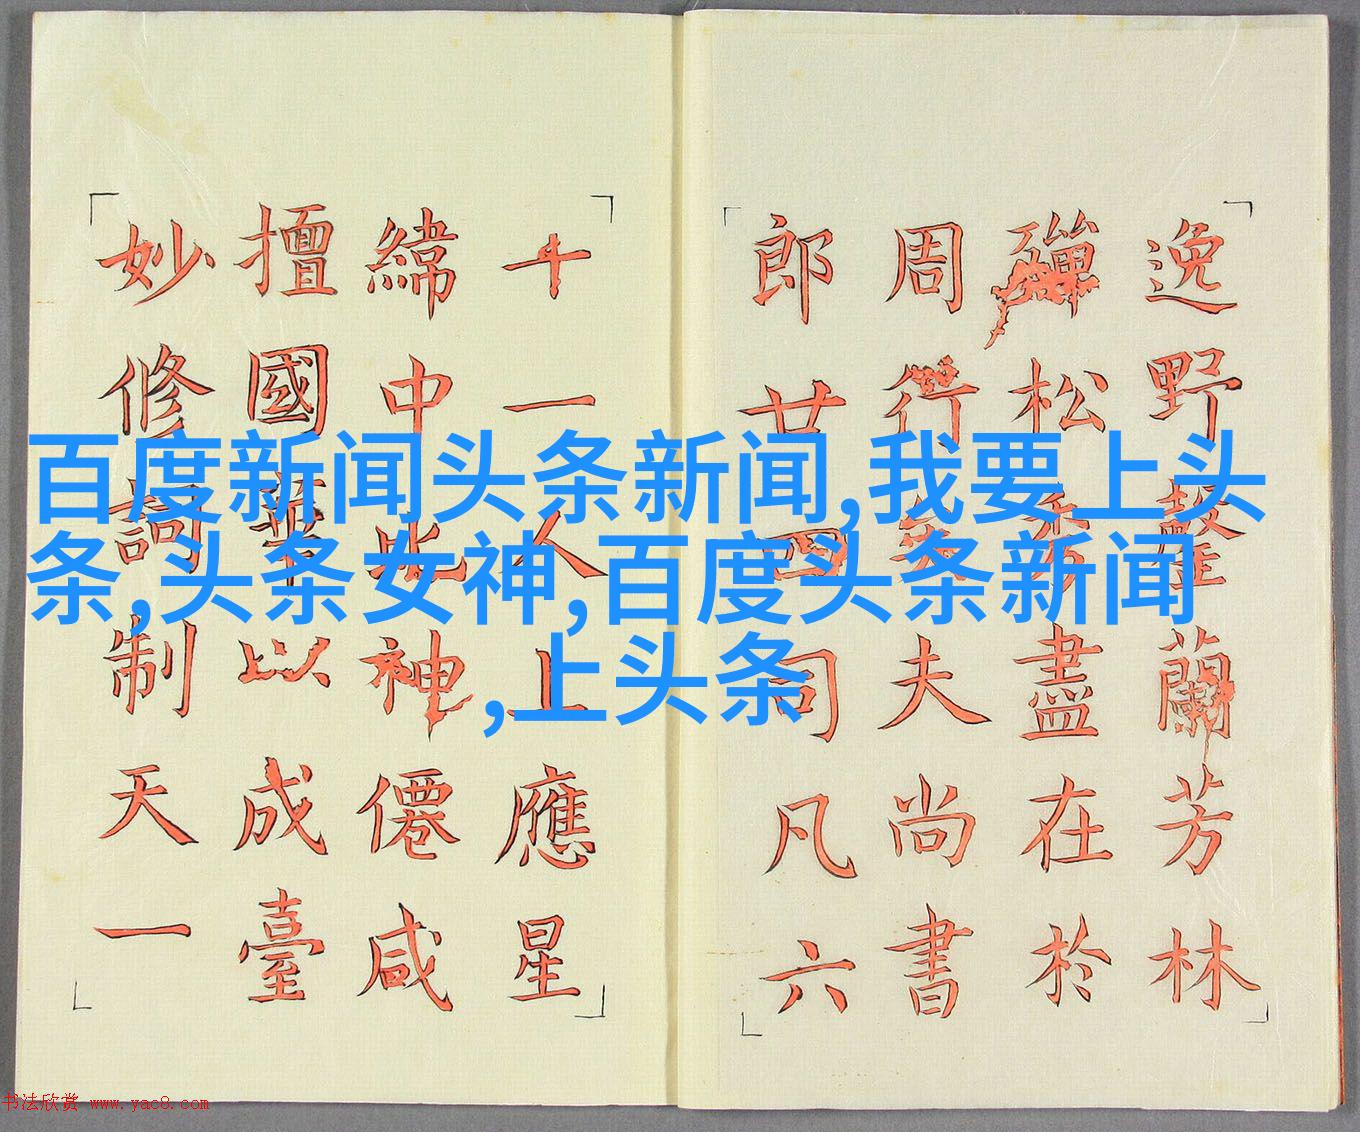 百度新闻头条新闻,我要上头
条,头条女神,百度头条新闻
,上头条
逸野罄蘭芳林
殫松秀盡在於
周行矣夫尚書
郎廿四司凡六
十一人上應星
緯中比神僊咸
擅國華以成臺
妙修詞制天一
书法欣赏 www.yac8.com